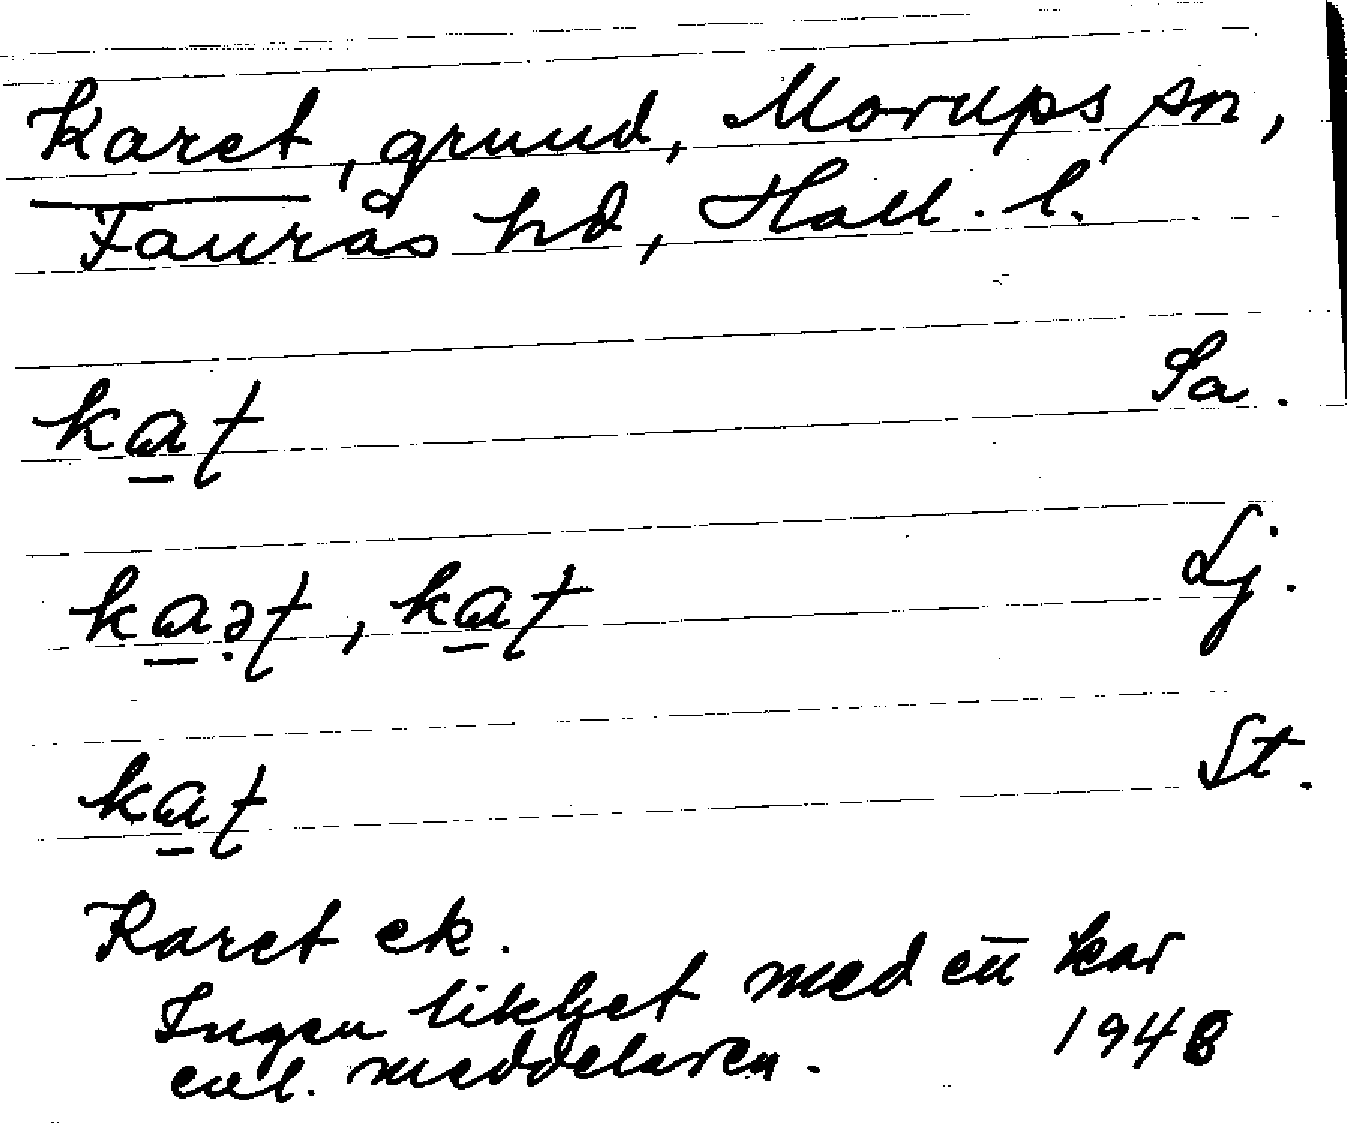 Karet, grund, Morups sn,
Faurås hd, Hall. l.
kat Sa.
kaət, kat Lj.
kat St.
Karet ek.
Ingen likhet med ett kar
enl. meddelaren. 1948